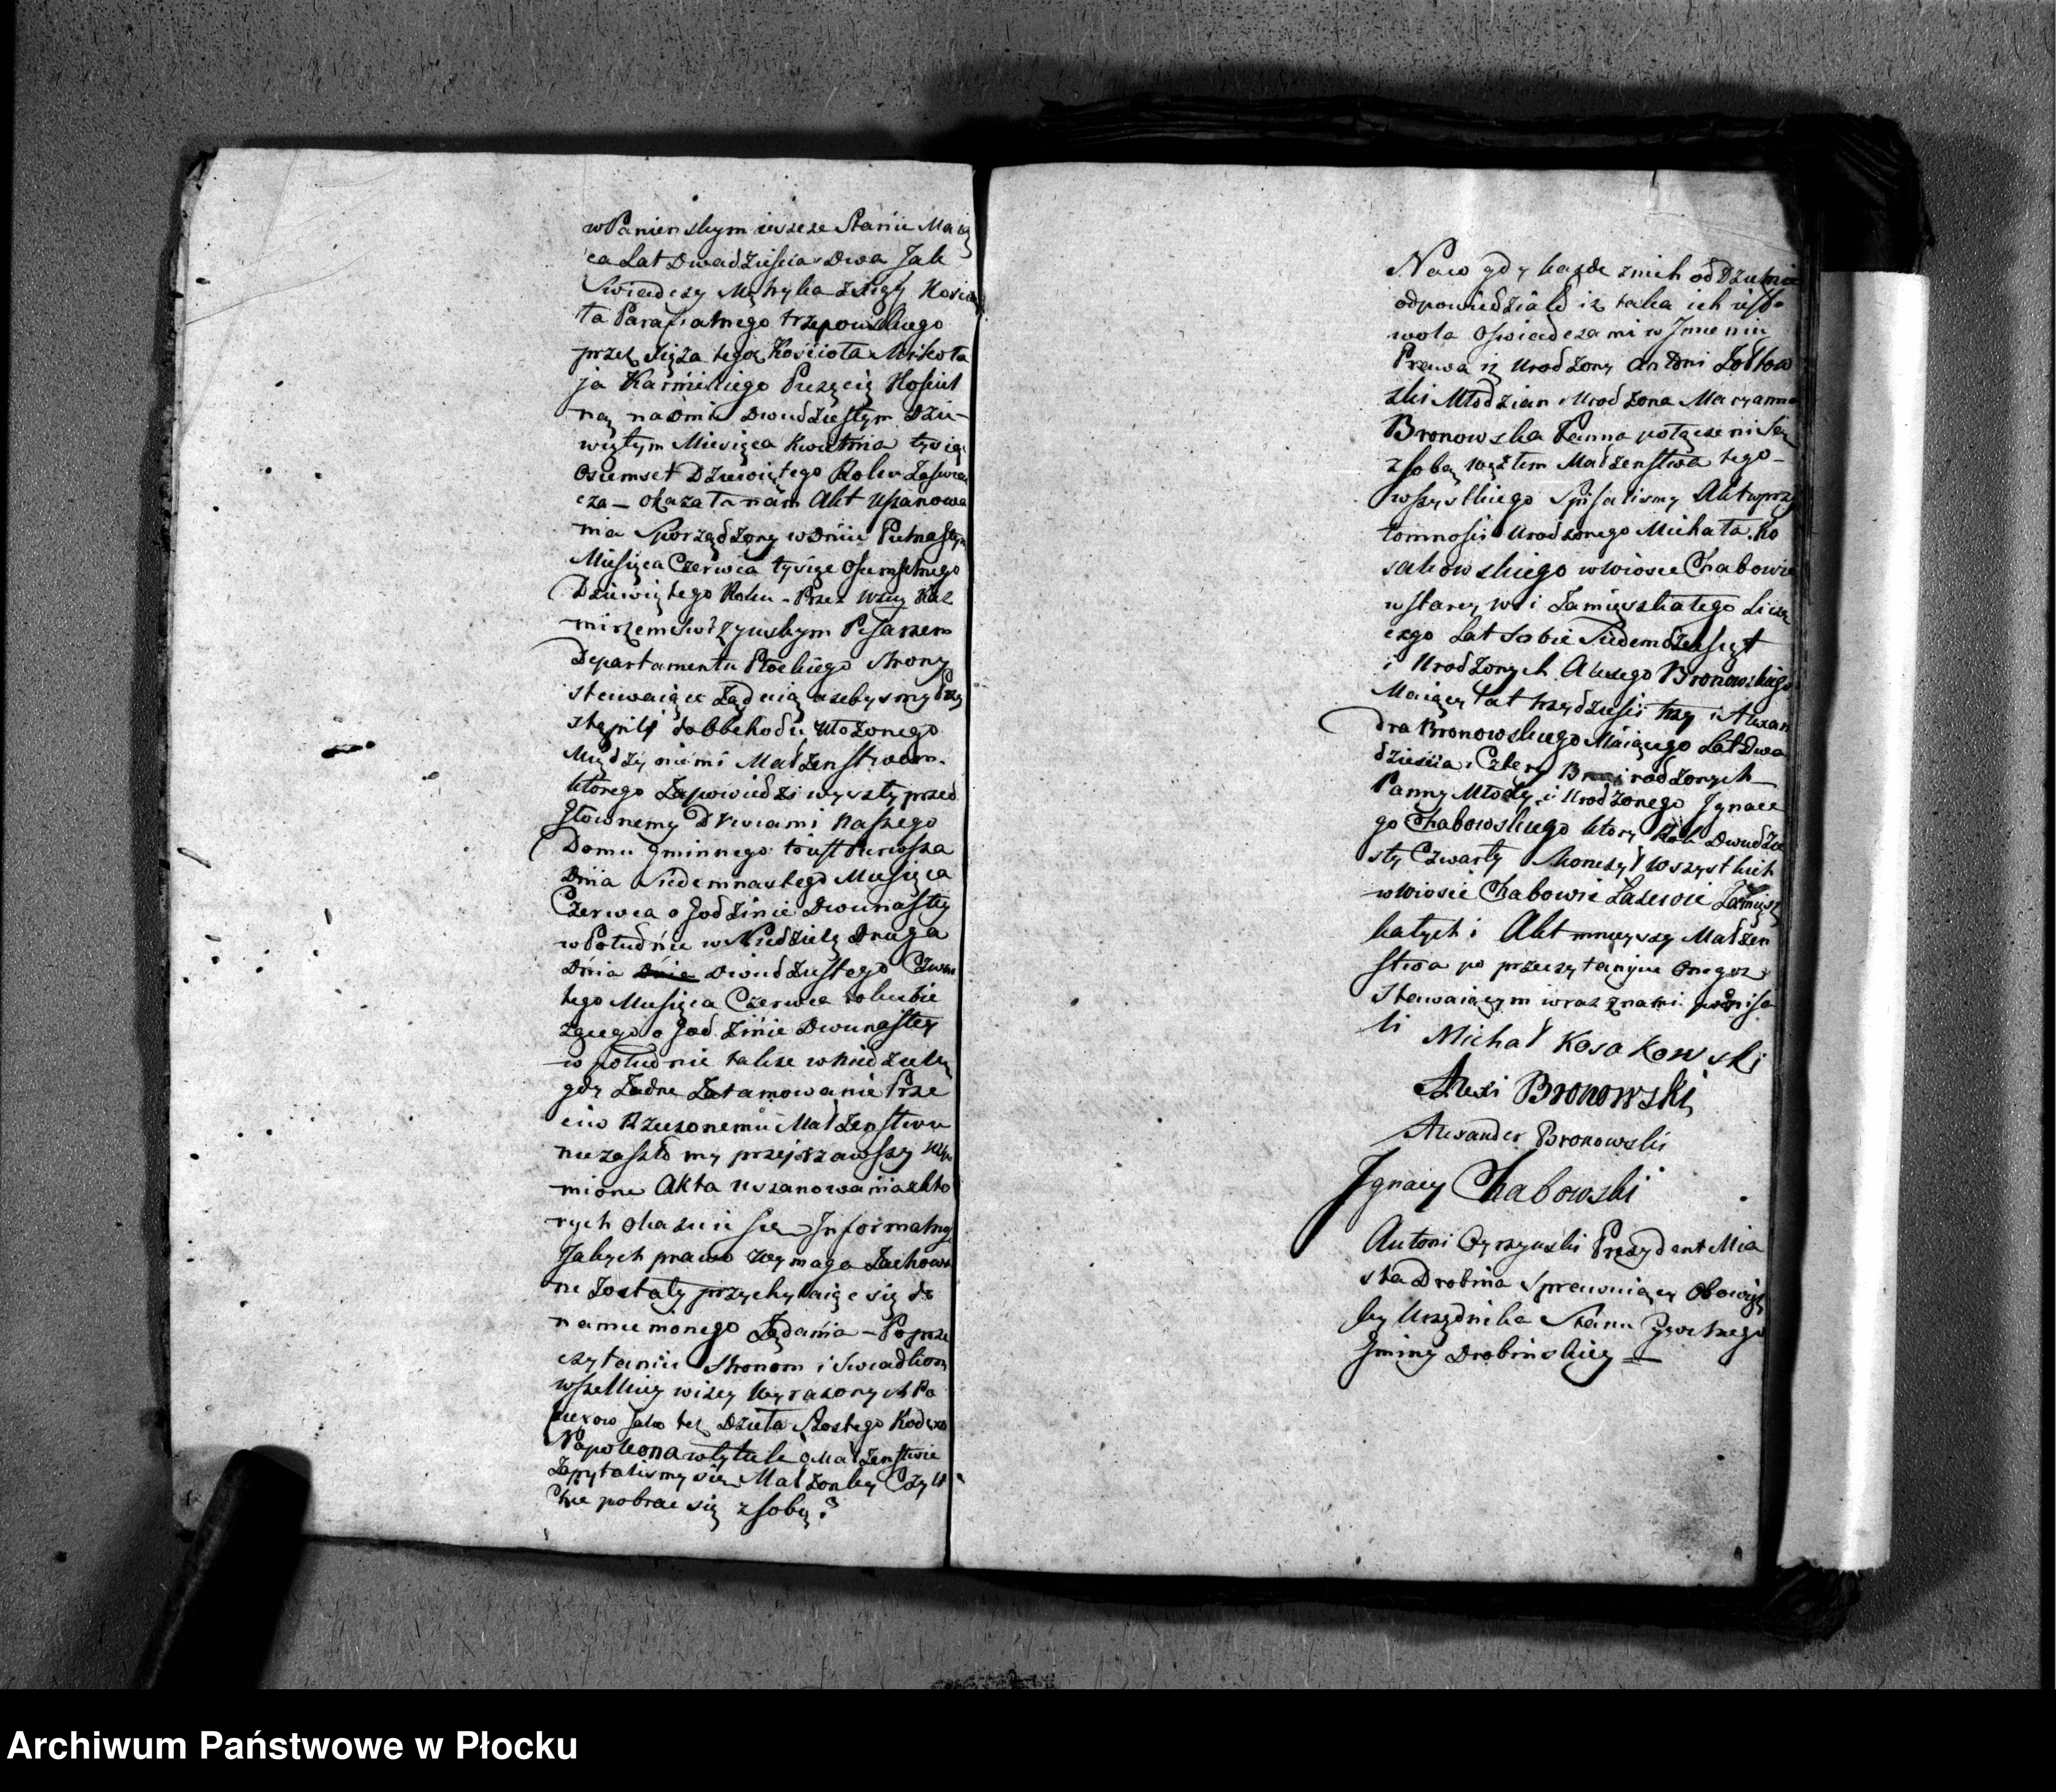 w Panienskym ieszcze Stanie Maią
ca Lat Dwadziescia Dwa Jak
Swiadczy Metryka z Xięgi Koscio
ła Parafialnego trzepowskiego
przez Xięza tegoz Kościoła Mikoła
ja Karnickiego Pieczęcią Kosciel
ną na Dniu Dwudziestym Dzie-
wiątym Miesiąca Kwietnia tysiąc
Osiemset Dziewiątego Roku Zaswiad
cza — Okazała nam Akt Uszanowa
nia Sporządzony w Dniu Pietnastym
Miesiąca Czerwca tysiąc Osiemsetnego
Dziewiątego Roku - Przez Kaz
mirzem Pisarzem
Departamentu Płockiego Strony
stawaiące Ządaią azebysmy Przy
stąpili do Obchodu Ułozonego
Między niemi Małżenstwem.
którego Zapowiedzi wyszły przed
Głownemy Drwiami Naszego
Domu Gminnego to iest Pierwsza
Dnia Siedemnastego Miesiąca
Czerwca o Godzinie Dwunastey
w Południe w Niedzielę Druga
Dnia Dnia Dwudziestego Czwar
tego Miesiąca Czerwca roku bie
zącego o Godzinie Dwunastey
w południe takze w Niedzielę
gdy Zadne Zatamowanie Prze
ciw Rzeczonemu Małżenstwu
nie zaszło my przejrzawszy Wspo
mione Akta uszanowania z kto
rych okazuie się iz Informalnych
Jakych prawo wymaga Zachowa
ne Zostały przychylaiąc się do
namienionego Ządania — Po prze
czytaniu Stronom i Swiadkom
wszelkiey wizey wyrazonych Pa
pierow Jako tez Działa Szostego Kodexu
Napoleona w tytule o Małżenstwie
Zapytalismy się Małzonkey Czyli
chce pobrac się z sobą?
Naco gdy kazde z nich oddzielnie
odpowiedziało iz taka ich iest
wola Oswiadczamy w Imieniu
Prawa iz Urodzony Antoni Zołtow
ski Młodzian Urodzona Maryanna
Bronowska Panna połączeni Są
z sobą węzłem Małżenstwa tego-
wszystkiego Spisalismy Akt w przy
tomnosci Urodzonego Michała Ko
sakowskiego w wiosce Chabowie
w starey wsi Zamieszkałego Licią
czego Lat Sobie Siedemdziesiąt
i Urodzonych Alexego Bronowskiego
Maiący Lat trzydziesci trzy i Alexan
dra Bronowskiego Maiącego Lat Dwa
dziescia Cztery Braci rodzonych
Panny Młody i Urodzonego Ignace
go Chabowskiego ktory Rok Dwudzie
sty Czwarty Skonczył Wszystkich
w wiosce Chabowie Zamiesz
kałych i Akt mnieyszy Małżen
stwa po przeczytaniu Onegoz
Stawaiącym wraz z nami podpisa
li Michał Kosakowski
Alexi Bronowski
Alexander Bronowski
Ignacy Chabowski
Antoni Prezydent Mia
sta Drobina Sprawuiący Obowiąz
ky Urzędnika Stanu Cywilnego
Gminy Drobińskiey —
Archiwum Państwowe w Płocku